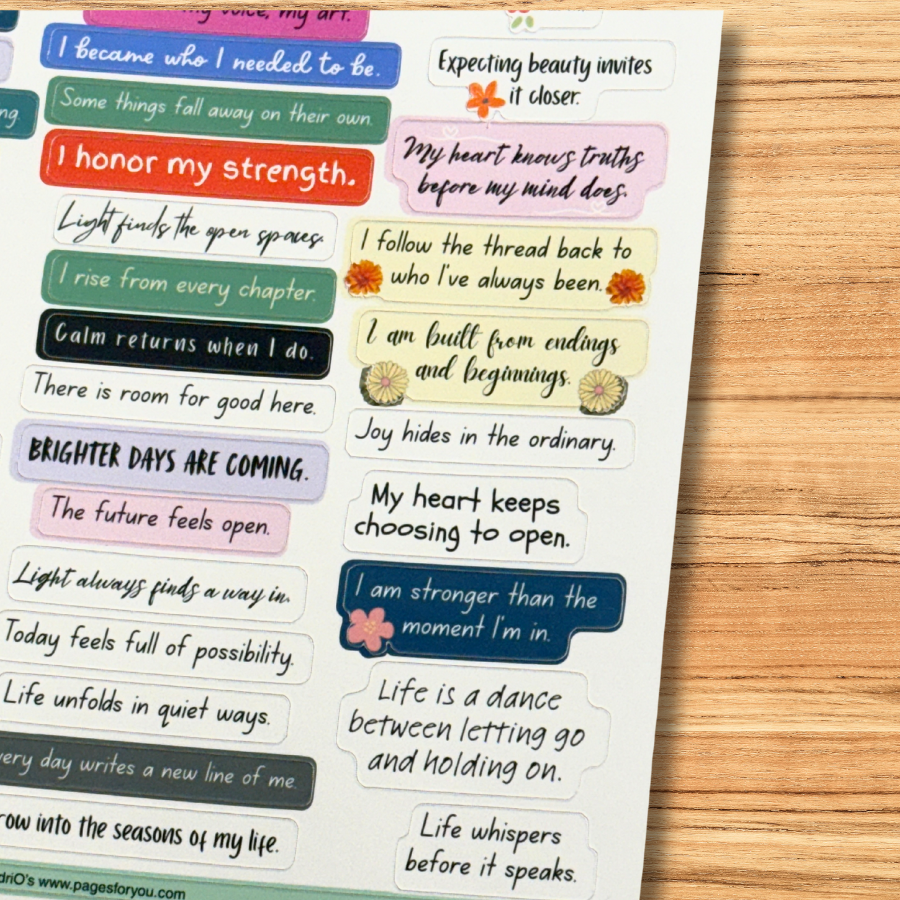 my voice, my art.
I became who I needed to be.
Some things fall away on their own.
I honor my strength.
Light finds the open spaces.
I rise from every chapter.
Calm returns when I do.
There is room for good here.
BRIGHTER DAYS ARE COMING.
The future feels open.
Light always finds a way in.
Today feels full of possibility.
Life unfolds in quiet ways.
very day writes a new line of me.
row into the seasons of my life.
Expecting beauty invites
it closer.
My heart knows truths
before my mind does.
I follow the thread back to
who I've always been.
I am built from endings
and beginnings.
Joy hides in the ordinary.
My heart keeps
choosing to open.
I am stronger than the
moment I'm in.
Life is a dance
between letting go
and holding on.
Life whispers
before it speaks.
driO's www.pagesforyou.com